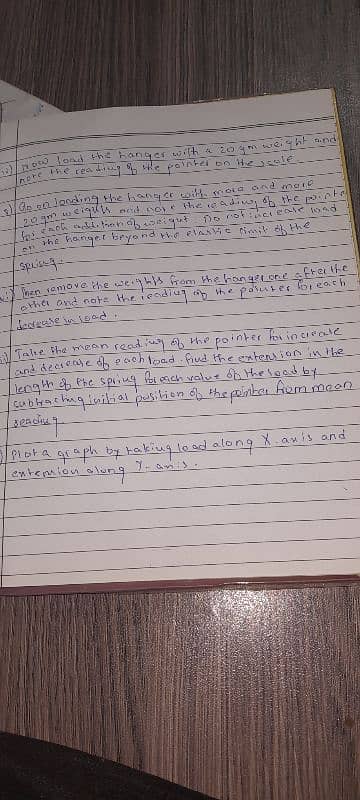 Now load the hanger with a 20 gm weight and
note the reading of the pointer on the scale
Go on loading the hanger with more and more
20 gm weights and note the reading of the pointe
for each addition of weight Do not increase load
on the hanger beyond the elastic limit of the
spring.
Then remove the weights from the hanger one after the
other and note the reading of the pointer for each
decrease in load.
Take the mean reading of the pointer for increase
and decrease of each load. find the extension in the
length of the spring for each value of the load by
subtracting initial position of the pointer from mean
reading
Plot a graph by taking load along X-axis and
extension along Y-axis.